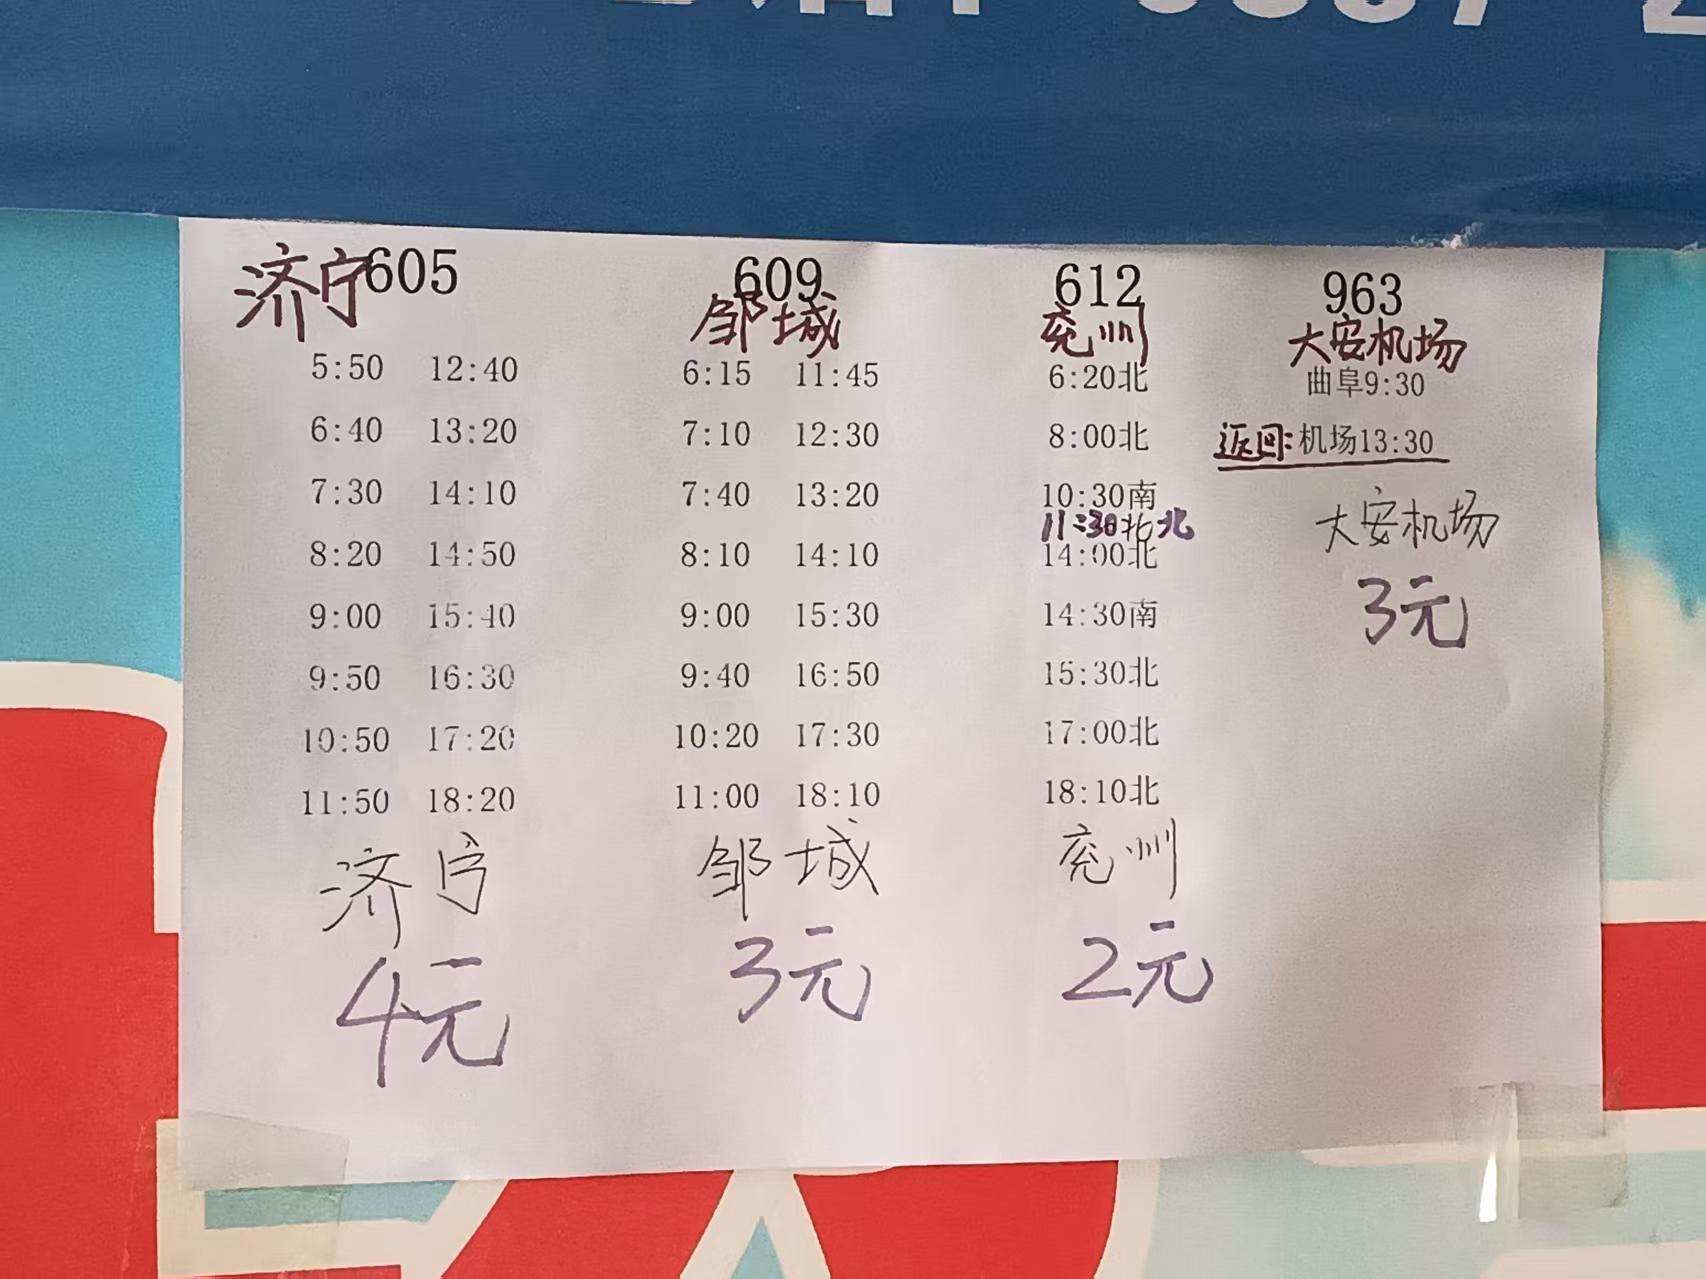 济宁605 609 612 963
邹城 兖州 大安机场
5:50 12:40 6:15 11:45 6:20北 曲阜9:30
6:40 13:20 7:10 12:30 8:00北 返回:机场13:30
7:30 14:10 7:40 13:20 10:30南 大安机场
11:30北北
8:20 14:50 8:10 14:10 14:00北 3元
9:00 15:40 9:00 15:30 14:30南
9:50 16:30 9:40 16:50 15:30北
10:50 17:20 10:20 17:30 17:00北
11:50 18:20 11:00 18:10 18:10北
济宁 邹城 兖州
4元 3元 2元